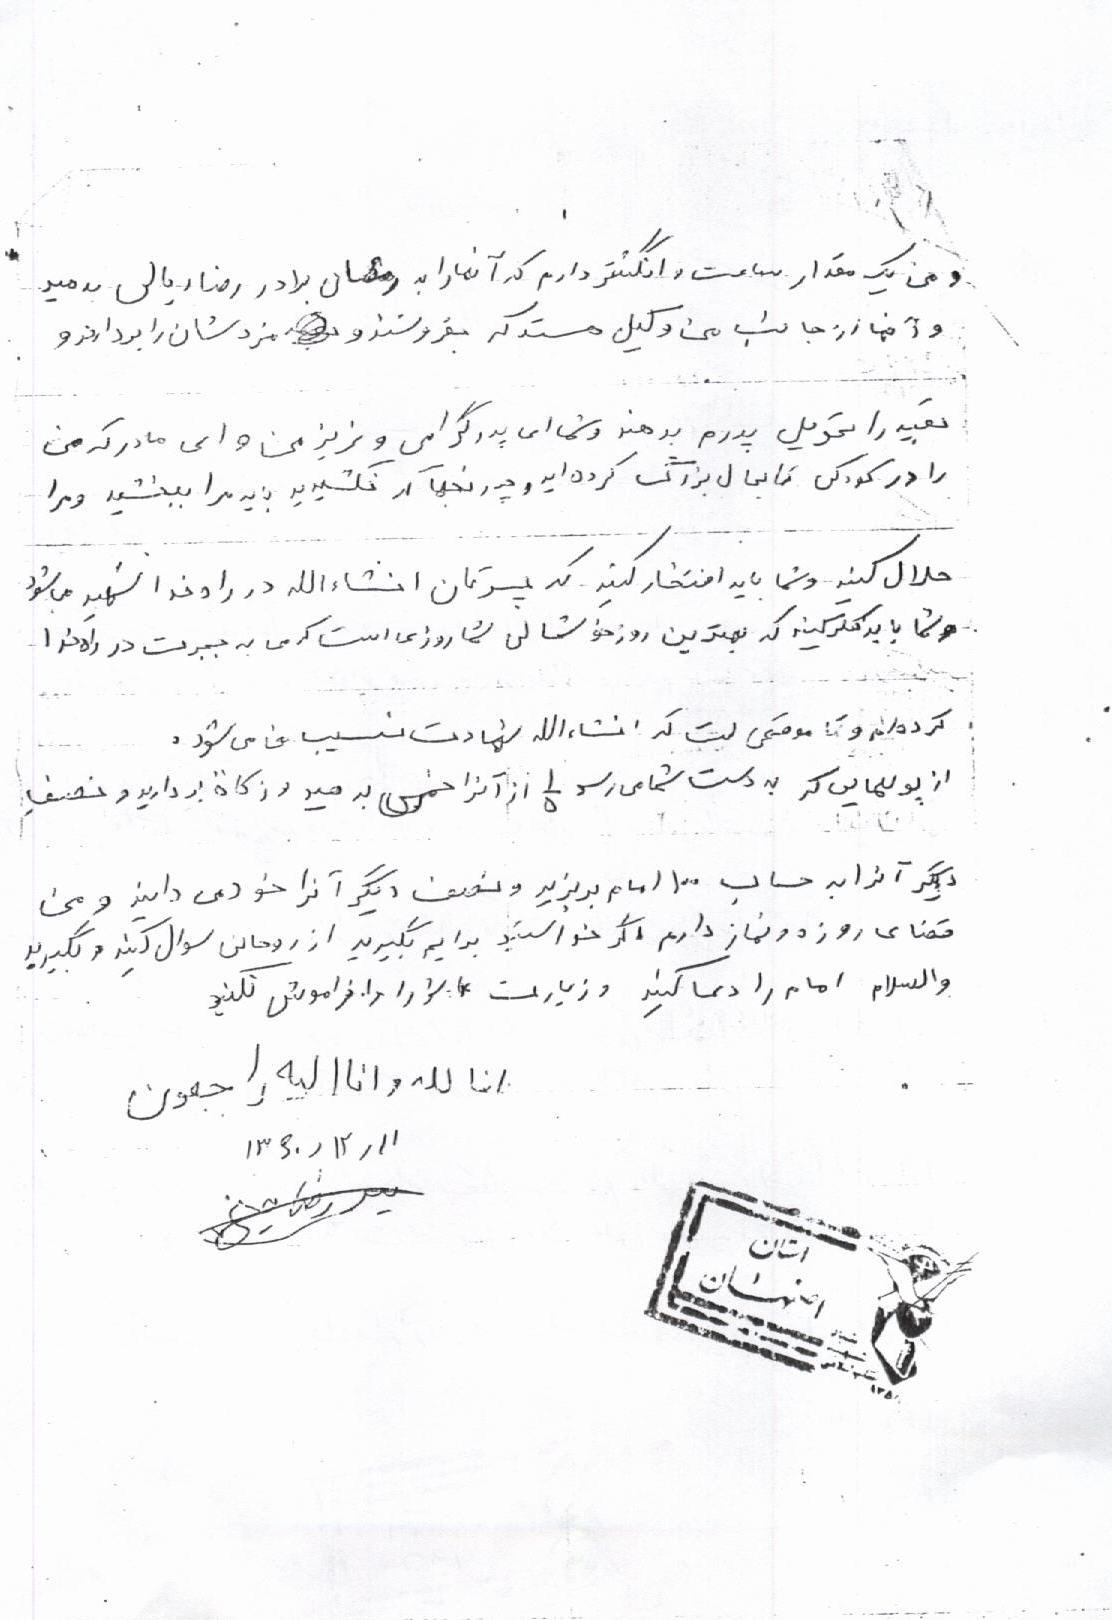 و من یک مقدار ساعت و انگشتر دارم که آنها را به رمضان برادر رضا ریالی بدهید
و آنها از جانب من وکیل هستند که بفروشند و مزدشان را بردارند و
بقیه را تحویل پدرم بدهند و شما ای پدر گرامی و عزیز من و ای مادر که من
را در کودکی تا بحال بزرگ کرده‌اید و چه رنجها که نکشیدید باید مرا ببخشید و مرا
حلال کنید و شما باید افتخار کنید که پسرتان انشاءالله در راه خدا شهید میشود
و شما باید فکر کنید که بهترین روز خوشحالی شما روزی است که من به هجرت در راه خدا
کرده‌ام و تا موقعی است که انشاءالله شهادت نسیب من می‌شود .
از پولهایی که به دست شما می‌رسد ۱/۵ از آنرا خمس بدهید و زکاة بردارید و نصف
دیگر آنرا به حساب ۱۰۰ امام بریزید و نصف دیگر آنرا خود می دانید و من
قضای روزه و نماز دارم اگر خواستید برایم بگیرید از روحانی سوال کنید و بگیرید
والسلام امام را دعا کنید و زیارت عاشورا را فراموش نکنید
انا لله و انا الیه راجعون
۱۱ ر ۱۲ ر ۱۳۶۰
استان
اصفهان